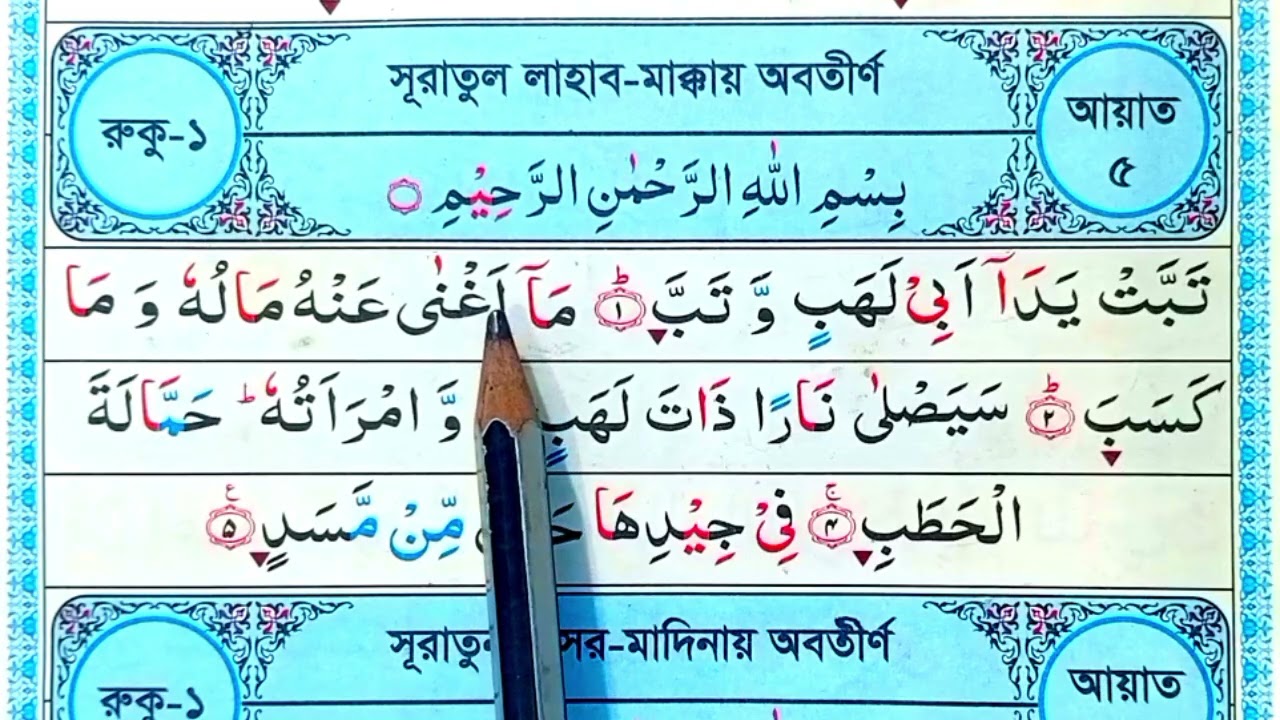 সূরাতুল লাহাব-মাক্কায় অবতীর্ণ
রুকু-১
আয়াত
৫
بِسْمِ اللّٰهِ الرَّحْمٰنِ الرَّحِيْمِ
تَبَّتْ يَدَاۤ اَبِيْ لَهَبٍ وَّ تَبَّ ؕ۝۱ مَاۤ اَغْنٰى عَنْهُ مَالُهٗ وَ مَا
كَسَبَ ؕ۝۲ سَيَصْلٰى نَارًا ذَاتَ لَهَبٍ وَّ امْرَاَتُهٗ ؕ حَمَّالَةَ
الْحَطَبِ ۚ۝۴ فِيْ جِيْدِهَا مِّنْ مَّسَدٍ ۝۵
মাদিনায় অবতীর্ণ
রুকু-১
আয়াত